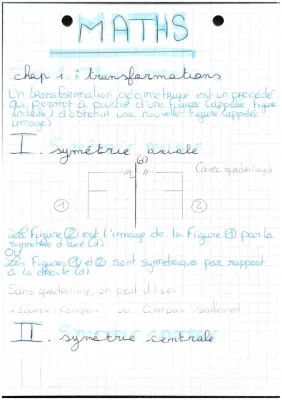 MATHS
chap 1 : transformations
Un transformation géométrique est un procédé
qui permet à partir d'une figure (appelée figure
initiale) d'obtenir une nouvelle figure (appelée
image)
I. symétrie axiale
(d)
(avec quadrillage)
① ②
La Figure ② est l'image de la Figure ① par la
symétrie d'axe (d)
OU
Les Figures ① et ② sont symétriques par rapport
à la droite (d)
Sans quadrillage, on peut utiliser :
compas seulement
II. symétrie centrale